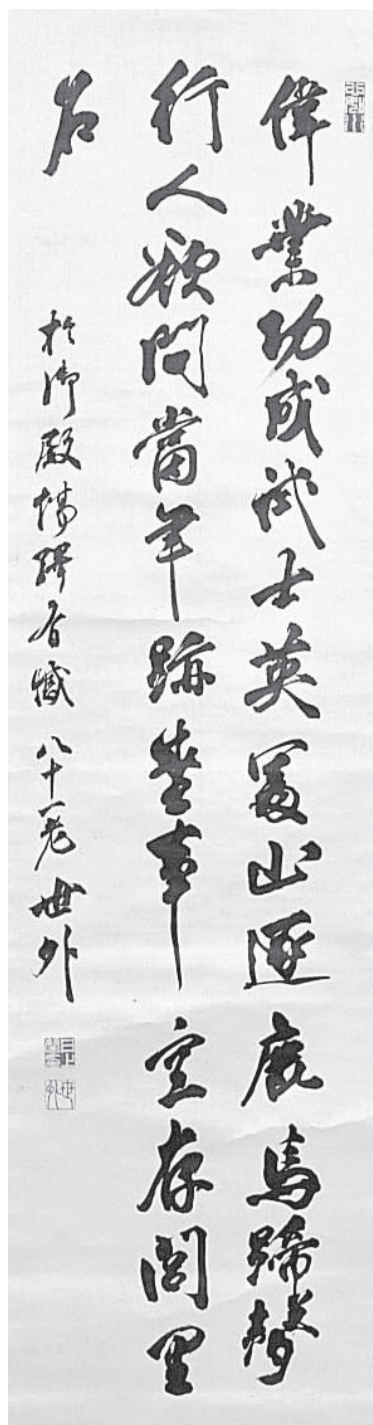 偉業功成武士英冨山逐鹿馬蹄聲
行人欲問當年跡盛事空存閭里
名
於御殿場驛有感 八十一老 世外